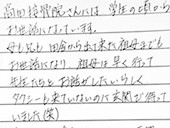 高田接骨院さんには、学生の頃から
お世話になっています。
母も兄も田舎から出て来た祖母までも
お世話になり、祖母は早く行って
先生たちとお話がしたいらしく
タクシーも来ていないのに玄関が行って
いました(笑)